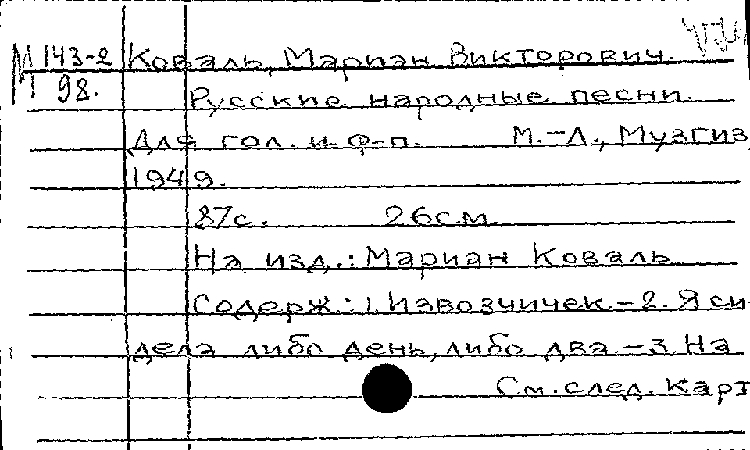 М 143-2 Коваль, Мариан Викторович.
98. Русские народные песни.
Для гол. и ф-п. М.-Л., Музгиз
1949.
87с. 26см
На изд.: Мариан Коваль
Содерж.: 1. Извозчичек. – 2. Я си
дела либо день, либо два – 3. На
См. след. карт